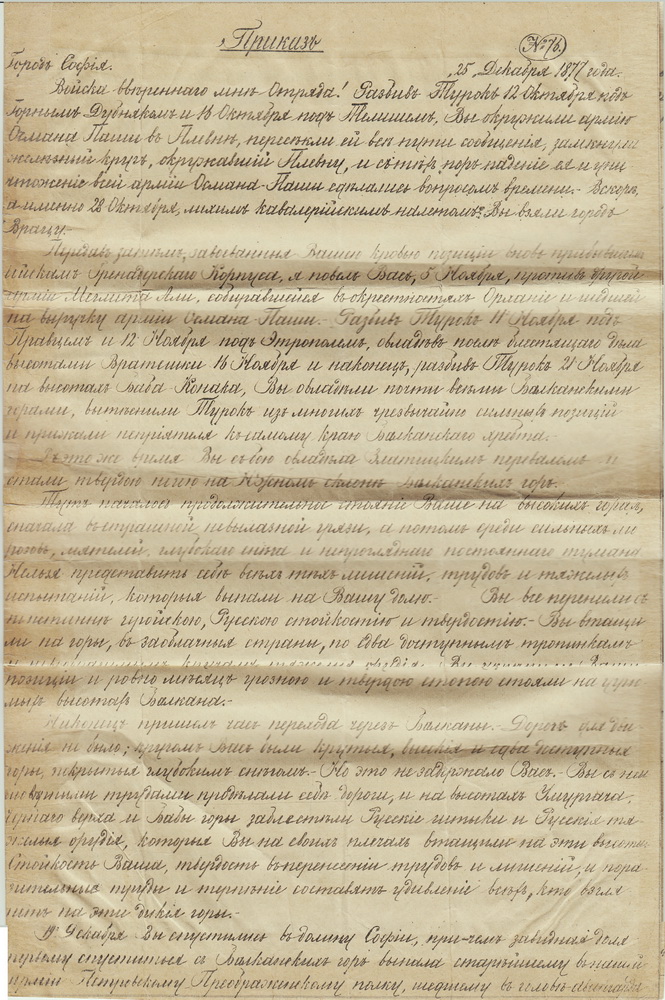 Приказъ
№ 76.
Городъ Софія.
25 Декабря 1877 года.
Войска ввѣреннаго мнѣ Отряда! Разбивъ Турокъ 12 Октября подъ
Горнымъ Дубнякомъ и 16 Октября подъ Телишемъ, Вы окружили армію
Османа Паши въ Плевнѣ, пересѣкли ей всѣ пути сообщенія, замкнули
желѣзный кругъ, окружавшій Плевну, и съ тѣхъ поръ паденіе ея и уни
чтоженіе всей арміи Османа-Паши сдѣлались вопросомъ времени.- Вскорѣ,
а именно 28 Октября, лихимъ кавалерійскимъ налетомъ Вы взяли городъ
Врацу.-
Передавъ затѣмъ, завоеванныя Вашею кровью позиціи вновь прибывшимъ
войскамъ Гренадерскаго Корпуса, я повелъ Васъ, 5 Ноября, противъ другой
арміи Мегмета Али, собиравшейся въ окрестностяхъ Орханіе и шедшей
на выручку арміи Османа Паши.- Разбивъ Турокъ 11 Ноября подъ
Правцемъ и 12 Ноября подъ Этрополемъ, овладѣвъ послѣ блестящаго дѣла
высотами Вратешки 16 Ноября и наконецъ, разбивъ Турокъ 21 Ноября
на высотахъ Баба Конака, Вы овладѣли почти всѣми Балканскими
горами, вытѣснили Турокъ изъ многихъ чрезвычайно сильныхъ позицій
и прижали непріятеля къ самому краю Балканскаго хребта.-
Въ то же время Вы съ бою овладѣли Златицкимъ переваломъ и
стали твердою ногою на Южномъ склонѣ Балканскихъ горъ.
Тутъ началось продолжительное стояніе Ваше на высокихъ горахъ,
сначала въ страшной невылазной грязи, а потомъ среди сильныхъ мо
розовъ, мятелей, глубокаго снѣга и непрогляднаго постояннаго тумана
Нельзя представить себѣ всѣхъ тѣхъ лишеній, трудовъ и тяжелыхъ
испытаній, которыя выпали на Вашу долю.- Вы все перенесли съ
истинно геройскою, Русскою стойкостію и твердостію.- Вы втащи
ли на горы, въ заоблачныя страны, по едва доступнымъ тропинкамъ
позиціи и ровно мѣсяцъ грозною и твердою стопою стояли на угрю
мыхъ высотахъ Балкана.-
Наконецъ пришелъ часъ перехода черезъ Балканы.- Дорогъ для дви
женія не было; кругомъ Васъ были крутыя, высокія и едва доступныя
горы, покрытыя глубокимъ снѣгомъ.- Но это не задержало Васъ.- Вы съ
трудами продѣлали себѣ дороги, и на высотахъ Умургача,
Чернаго верха и Бабы горы заблестѣли Русскіе штыки и Русскія тя
желыя орудія, которыя Вы на своихъ плечахъ втащили на эти высоты
Стойкость Ваша, твердость въ перенесеніи трудовъ и лишеній, и пора
зительные труды и терпѣніе составятъ удивленіе всѣхъ, кто взгля
нетъ на эти дикія горы.-
19го Декабря Вы спустились въ долину Софіи, при-чемъ завидная доля
первому спуститься съ Балканскихъ горъ выпала старѣйшему въ нашей
арміи Петровскому Преображенскому полку, шедшему въ головѣ авангарда